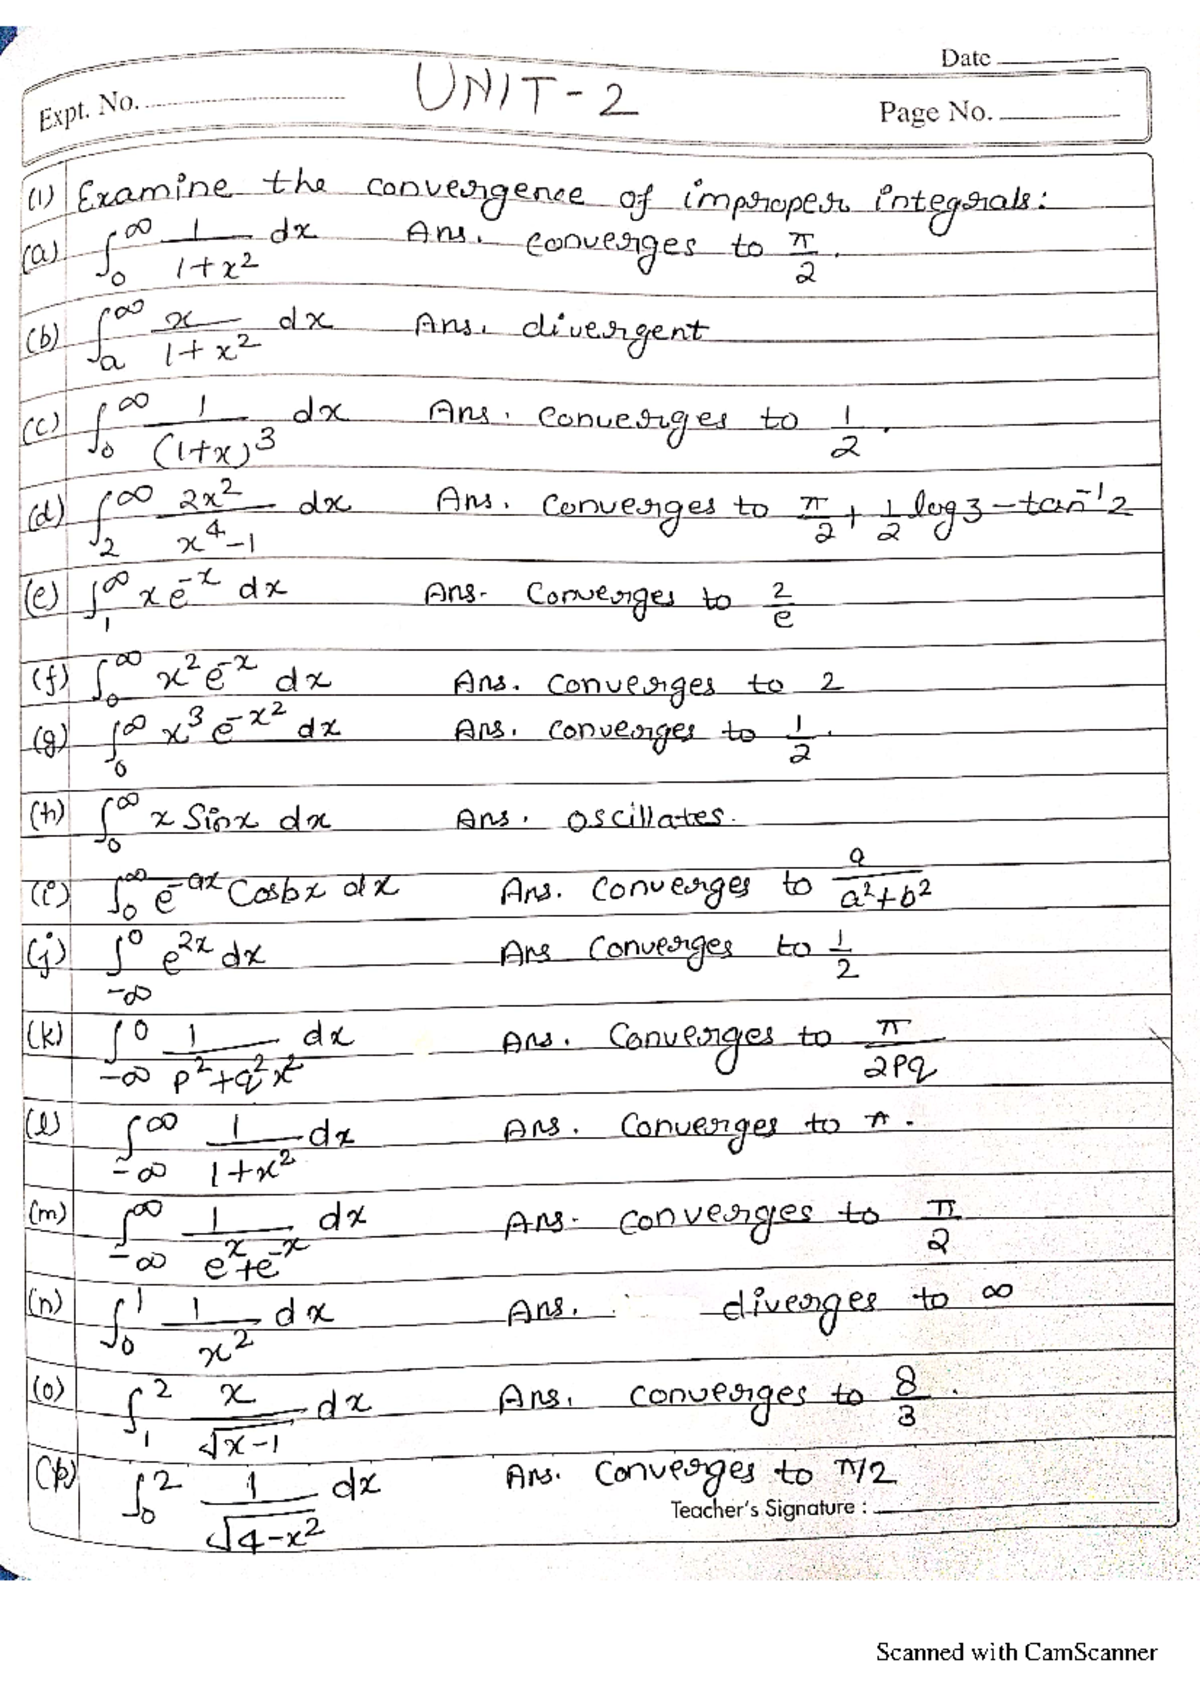 Date
Expt. No. UNIT-2
Page No.
(1) Examine the convergence of improper integrals:
(a) ∫₀^∞ 1/(1+x²) dx Ans. converges to π/2.
(b) ∫ₐ^∞ x/(1+x²) dx Ans. divergent
(c) ∫₀^∞ 1/(1+x)³ dx Ans. converges to 1/2.
(d) ∫₂^∞ 2x²/(x⁴-1) dx Ans. converges to π/2 + 1/2 log3 - tan⁻¹2
(e) ∫₁^∞ x e⁻ˣ dx Ans. Converges to 2/e
(f) ∫₀^∞ x² e⁻ˣ dx Ans. converges to 2
(g) ∫₀^∞ x³ e^(-x²) dx Ans. converges to 1/2.
(h) ∫₀^∞ x Sinx dx Ans. oscillates.
(i) ∫₀^∞ e^(-ax) Cosbx dx Ans. converges to a/(a²+b²)
(j) ∫_-∞^0 e^(2x) dx Ans converges to 1/2
(k) ∫_-∞^0 1/(p²+q²x²) dx Ans. Converges to π/(2pq)
(l) ∫_-∞^∞ 1/(1+x²) dx Ans. Converges to π.
(m) ∫_-∞^∞ 1/(eˣ+e⁻ˣ) dx Ans. converges to π/2
(n) ∫₀^1 1/x² dx Ans. diverges to ∞
(o) ∫₁^2 x/√(x-1) dx Ans. converges to 8/3.
(p) ∫₀^2 1/√(4-x²) dx Ans. Converges to π/2
Teacher's Signature :
Scanned with CamScanner